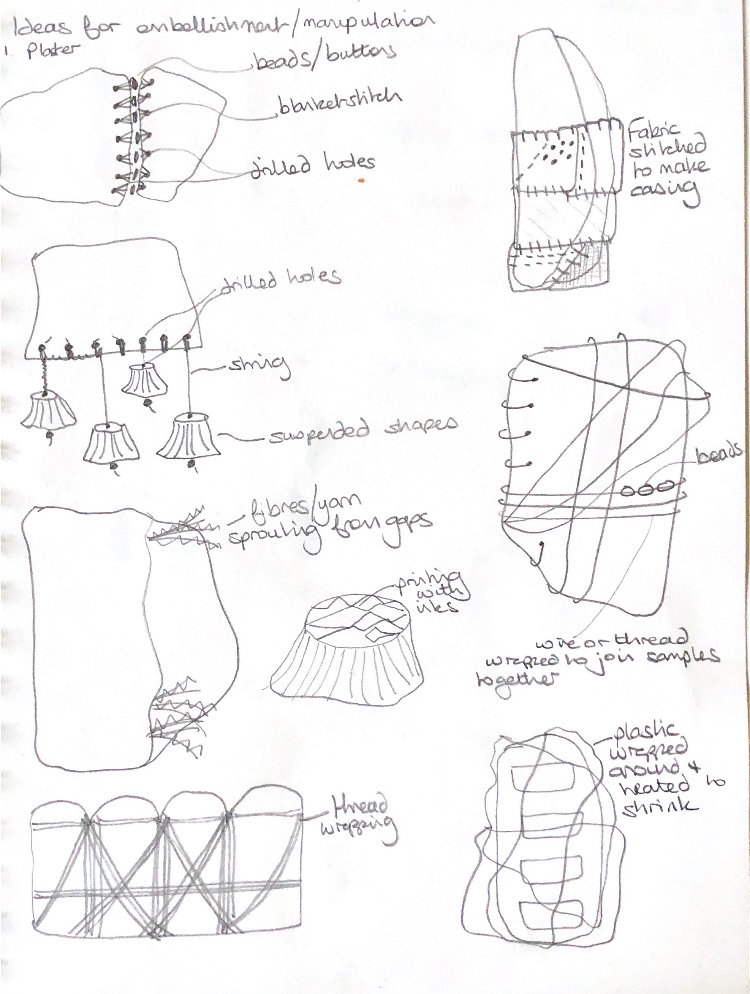 Ideas for embellishment/manipulation
1. Plaster
beads/buttons
blanket stitch
drilled holes
Fabric
stitched
to make
casing
drilled holes
string
suspended shapes
beads
fibres/yarn
sprouting from gaps
printing
with
inks
wire or thread
wrapped to join samples
together
plastic
wrapped
around +
heated to
shrink
thread
wrapping